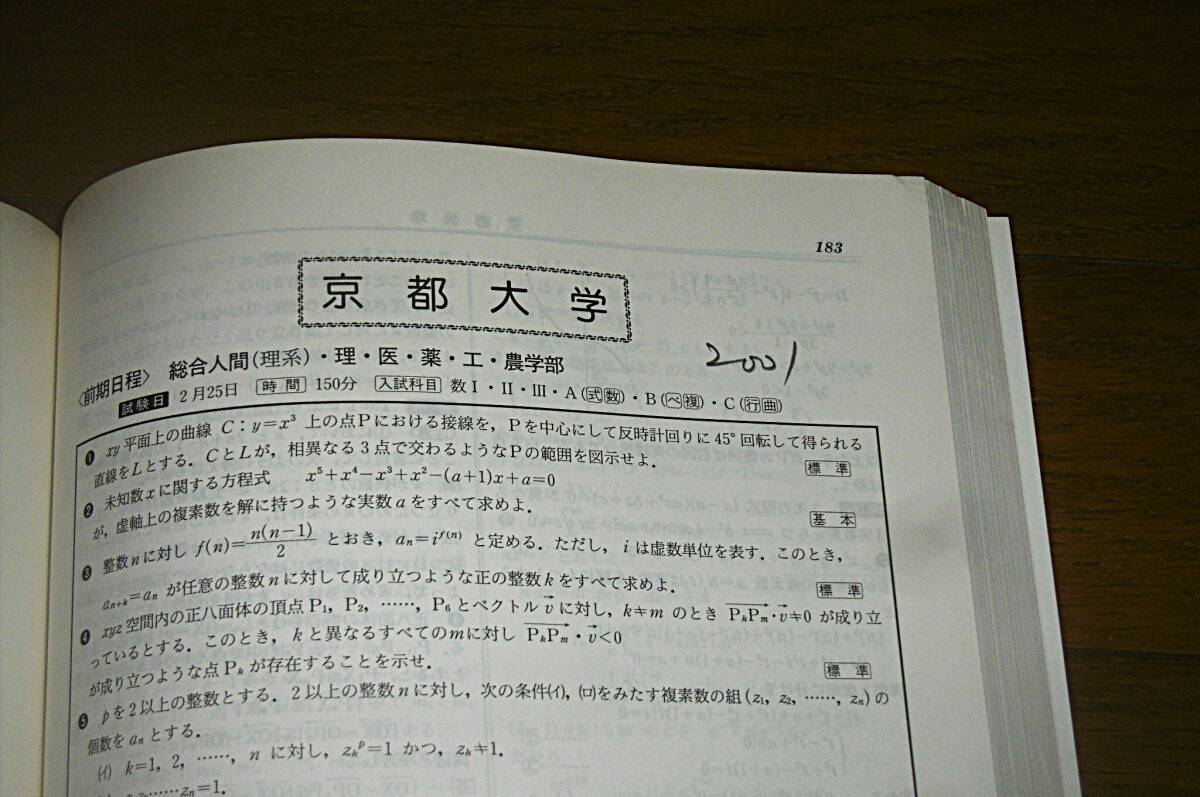 183
京都大学
2001
〈前期日程〉 総合人間(理系)・理・医・薬・工・農学部
試験日 2月25日 時間 150分 入試科目 数Ⅰ・Ⅱ・Ⅲ・A(式数)・B(ベ複)・C(行曲)
❶ xy平面上の曲線 C:y=x³ 上の点Pにおける接線を,Pを中心にして反時計回りに45°回転して得られる
直線をLとする.CとLが,相異なる3点で交わるようなPの範囲を図示せよ. 標準
❷ 未知数xに関する方程式 x⁵+x⁴−x³+x²−(a+1)x+a=0
が,虚軸上の複素数を解に持つような実数aをすべて求めよ. 基本
❸ 整数nに対し f(n)=n(n−1)/2 とおき,aₙ=i^f(n) と定める.ただし,iは虚数単位を表す.このとき,
aₙ₊ₖ=aₙ が任意の整数nに対して成り立つような正の整数kをすべて求めよ. 標準
❹ xyz空間内の正八面体の頂点P₁, P₂, ……, P₆とベクトルv⃗に対し,k≠mのとき PₖPₘ→・v⃗≠0 が成り立
っているとする.このとき,kと異なるすべてのmに対し PₖPₘ→・v⃗<0
が成り立つような点Pₖが存在することを示せ. 標準
❺ pを2以上の整数とする.2以上の整数nに対し,次の条件(イ),(ロ)をみたす複素数の組(z₁, z₂, ……, zₙ)の
個数をaₙとする.
(イ) k=1, 2, ……, n に対し,zₖᵖ=1 かつ,zₖ≠1.
……zₙ=1.